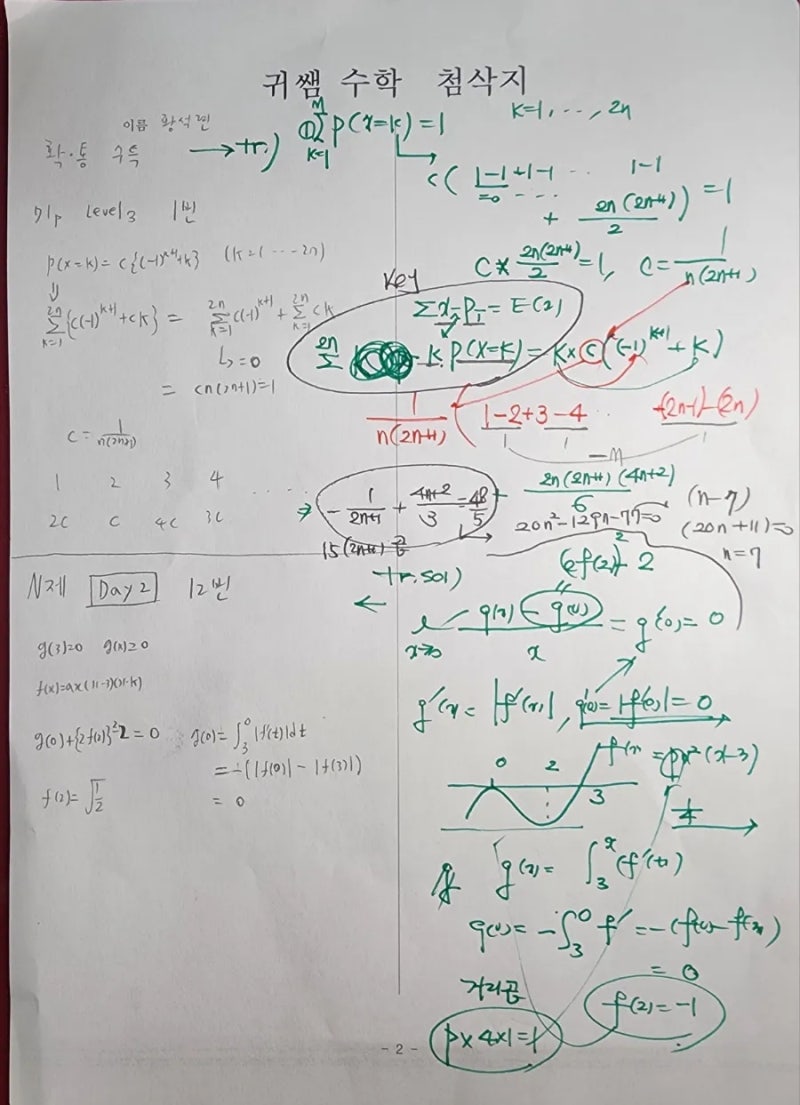 귀쌤 수학 첨삭지
이름 황석면
확·통 수특
71p Level3 1번
P(X=k) = C{(-1)^{k+1}+k} (k=1 ... 2n)
⇓
\sum_{k=1}^{2n} {C(-1)^{k+1}+Ck} = \sum_{k=1}^{2n} C(-1)^{k+1} + \sum_{k=1}^{2n} Ck
↳ = 0
= Cn(2n+1)=1
C = \frac{1}{n(2n+1)}
1 2 3 4 .....
2C C 4C 3C
→ tr.)
① \sum_{k=1}^{M} P(X=k) = 1 k=1, ..., 2n
C( 1-1 + 1-1 ... 1-1
=0 ...
+ \frac{2n(2n+1)}{2} ) = 1
C × \frac{2n(2n+1)}{2} = 1, C = \frac{1}{n(2n+1)}
Key
\sum x_i P_i = E(X)
\sum^{2n} k P(X=k) = k × C ((-1)^{k+1} + k)
\frac{1}{n(2n+1)} ( 1-2+3-4 ... +(2n-1)-(2n)
-n
⇒ -\frac{1}{2n+1} + \frac{4n+2}{3} = \frac{48}{5}
+ \frac{2n(2n+1)(4n+2)}{6}
15(2n+1)
20n²-129n-77=0
(n-7)
(20n+11)=0
n=7
N제 Day 2 12번
g(3)=0 g(x)≥0
f(x)=ax(x-3)(x-k)
g(0)+{2f(2)}²-2=0 g(0)=\int_3^0 |f'(t)|dt
= -(|f(0)|-|f(3)|)
f(2)=\sqrt{\frac{1}{2}} = 0
tr.sol)
←
(2f(2))²-2
\frac{g(x) - g(0)}{x} = g'(0) = 0
x→0
g'(x) = |f'(x)|, g'(0) = |f'(0)| = 0
0 2 3
f(x) = px²(x-3)
\frac{1}{4}
g(x) = \int_3^x (f'(t))
g(0) = -\int_3^0 f' = -(f(0)-f(3))
= 0
거리곱
p×4×1=1
f(2)=-1
- 2 -